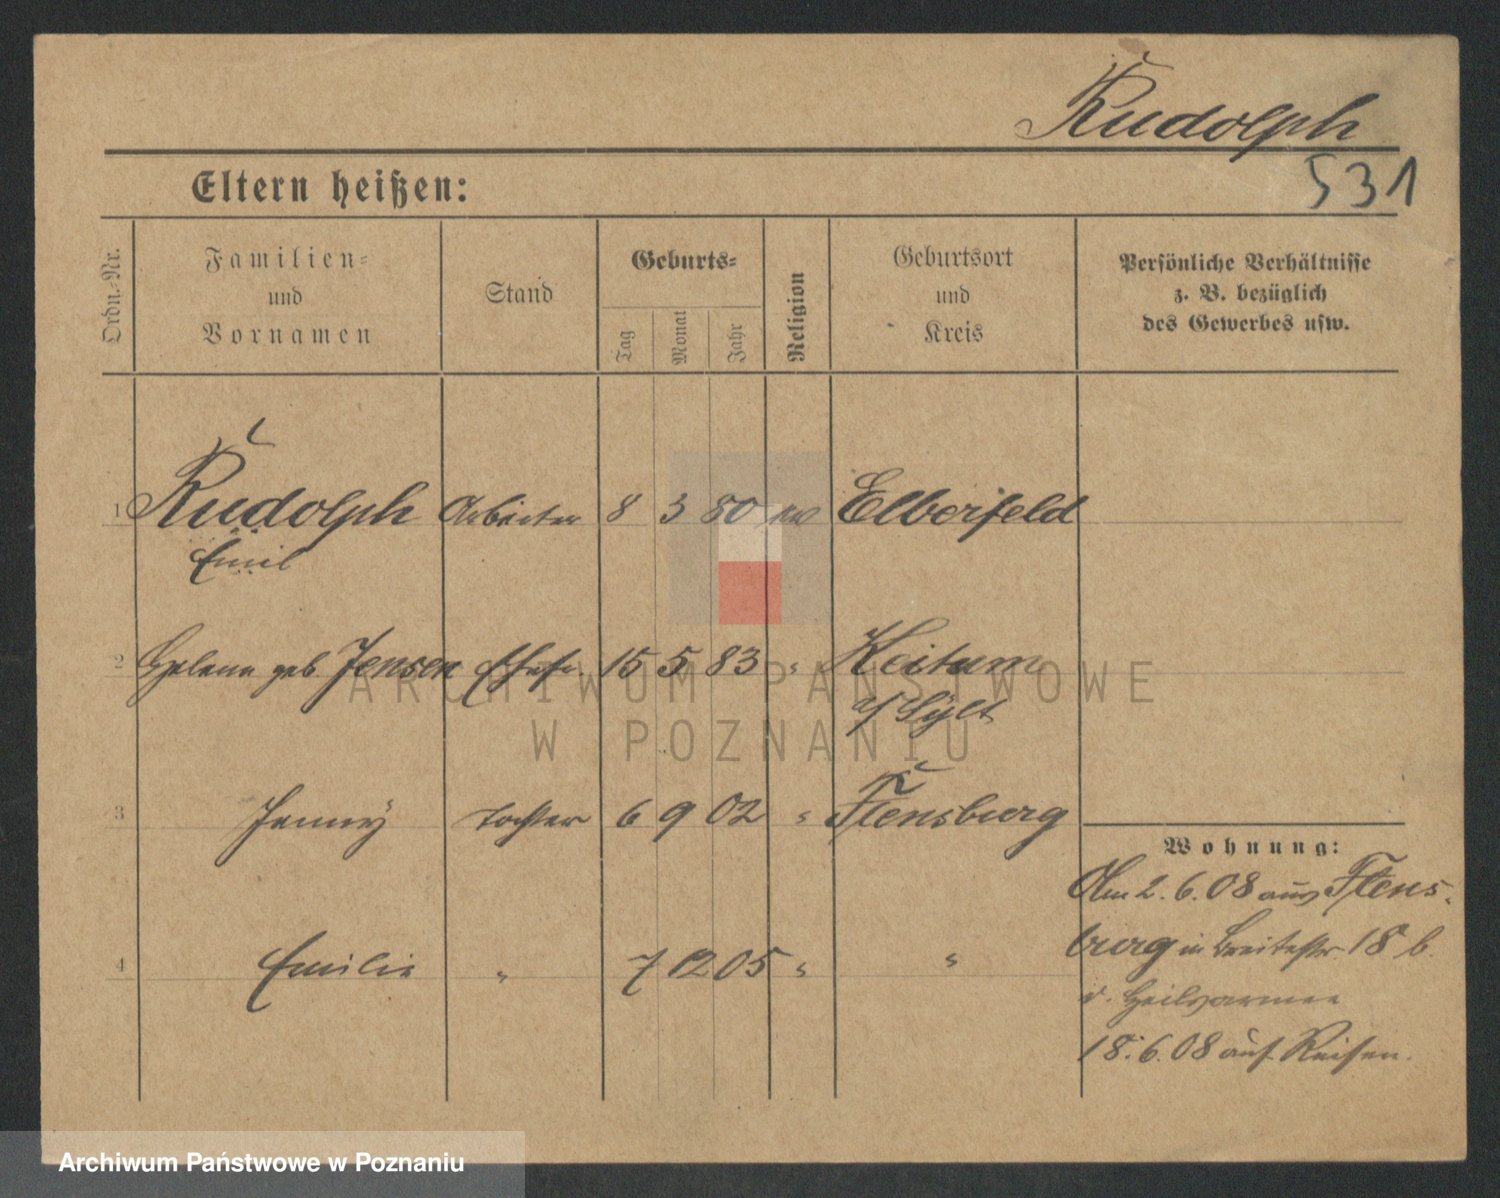 Rudolph
531
Eltern heißen:
Ordn.-Nr.
Familien-
und
Vornamen
Stand
Geburts-
Tag
Monat
Jahr
Religion
Geburtsort
und
Kreis
Persönliche Verhältnisse
z. B. bezüglich
des Gewerbes usw.
1 Rudolph Arbeiter 8 3 80 ev Elberfeld
Emil
2 Helene geb Jensen Ehefr. 15 5 83 " Keitum
a/ Sylt
3 Jenny Tochter 6 9 02 " Flensburg
Wohnung:
Am 2. 6. 08 aus Flens-
burg in Breitestr. 18 b.
d. Heilsarmee
18. 6. 08 auf Reisen.
4 Emilie " 7 12 05 " "
ARCHIWUM PAŃSTWOWE
W POZNANIU
Archiwum Państwowe w Poznaniu